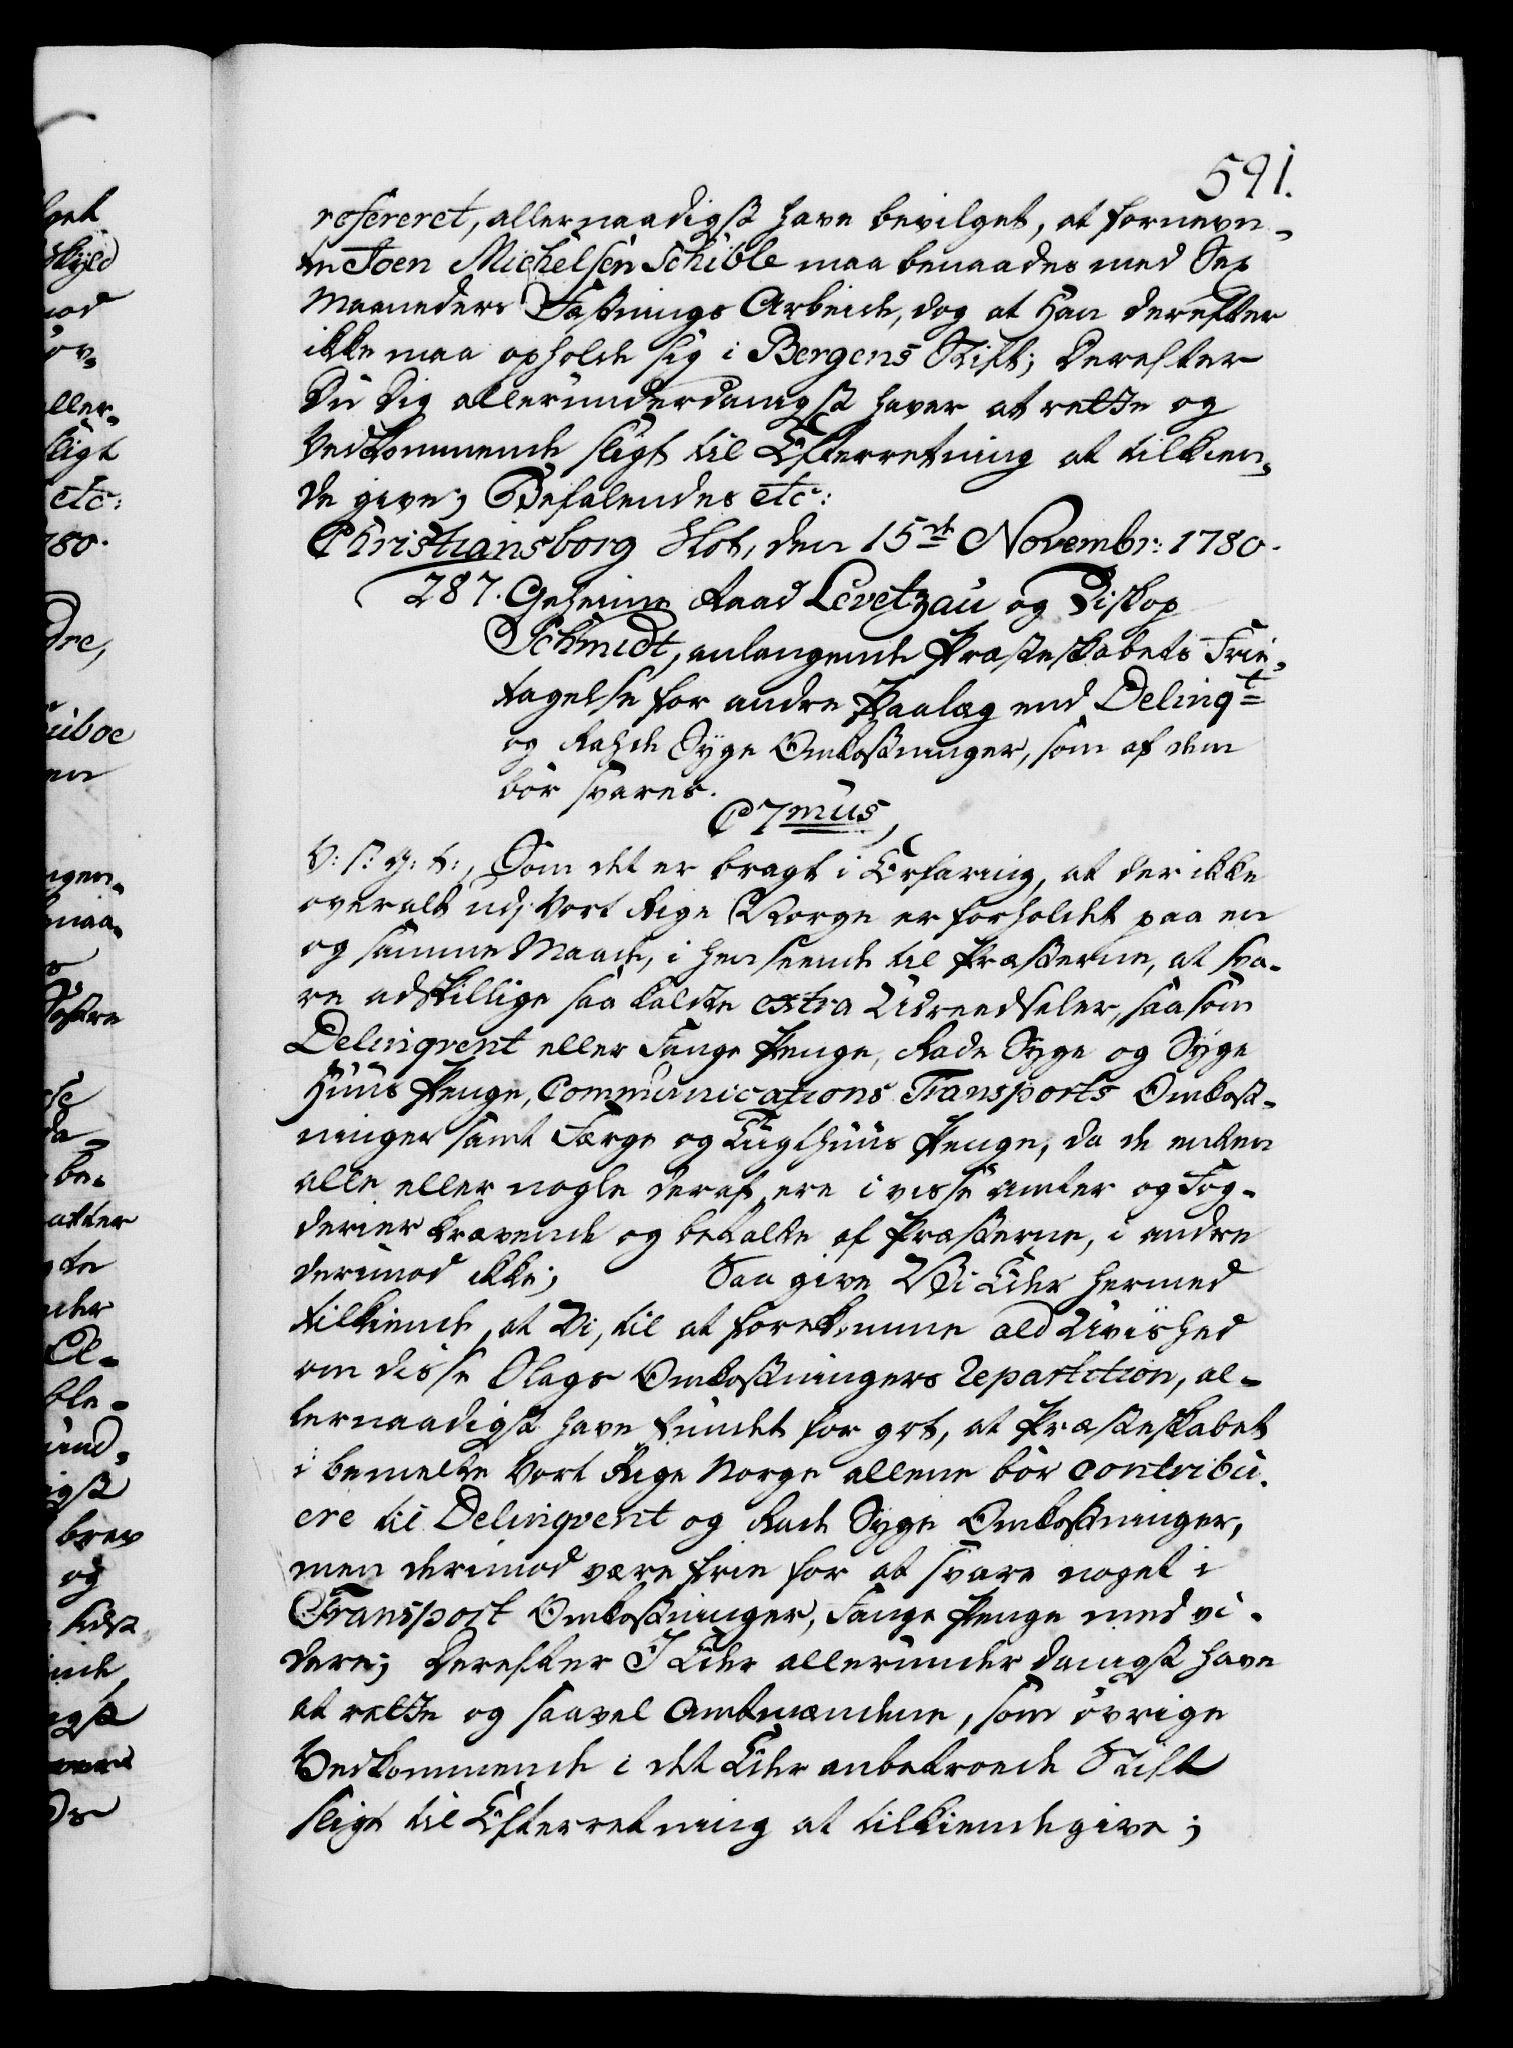 591.
refereret, allernaadigst have bevilget, at fornevn-
te Joen Michelsen Schible maa benaades med Sex
Maaneders Fæstnings Arbeide, dog at Han derefter
ikke maa opholde sig i Bergens Stift; Derefter
Du Dig allerunderdanigst haver at rette og
Vedkommende sligt til Efterretning at tilkien-
de give; Befalendes etc:
Christiansborg Slot, den 15de Novembr: 1780.
287. Geheime Raad Levetzau og Biskop
Schmidt, anlangende Præsteskabets Frie-
tagelse for andre Paalæg end Delinqt
og Rahde Syge Omkostninger, som af dem
bör svares.
C7mus,
V: S: G: T:, Som det er bragt i Erfaring, at der ikke
overalt udj Vort Rige Norge er forholdet paa en
og samme Maade, i henseende til Præsterne, at sva-
re adskillige saa kaldte extra Udreedseler, saasom
Delinqvent eller Fange Penge, Rade Syge og Syge
Huus Penge, Communications Transports Omkost-
ninger samt Færge og Tugthuus Penge, da de enten
alle eller nogle deraf, ere i visse Amter og Fog-
derier krævende og betalte af Præsterne, i andre
derimod ikke; Saa give Vi Eder hermed
tilkiende, at Vi, til at forekomme ald Uvished
om disse Slags Omkostningers repartition, al-
lernaadigst have fundet for got, at Præsteskabet
i bemelte Vort Rige Norge allene bör contribu-
ere til Delinqvent og Rade Syge Omkostninger,
men derimod være frie for at svare noget i
Transport Omkostninger, Fange Penge med vi-
dere; Derefter I Eder allerunderdanigst have
at rette og saavel Amtmændene, som övrige
Vedkommende i det Eder anbetroede Stift
sligt til Efterretning at tilkiendegive;